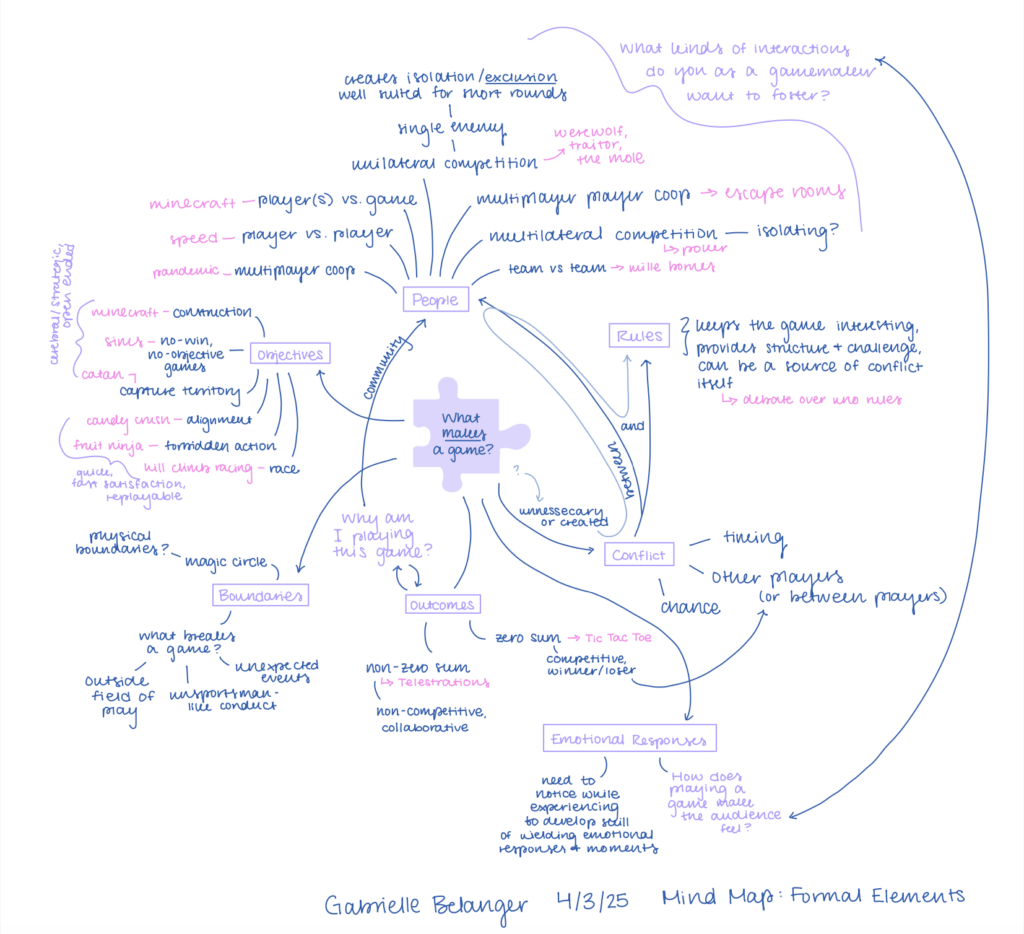 What kinds of interactions
do you as a gamemaker
want to foster?
creates isolation/exclusion
well suited for short rounds
single enemy
unilateral competition
werewolf,
traitor,
the mole
minecraft
player(s) vs. game
multiplayer player coop
escape rooms
speed
player vs. player
multilateral competition
isolating?
poker
pandemic
multiplayer coop
team vs team
mille bornes
People
cerebral/strategic,
open ended
minecraft
construction
sims
no-win,
no-objective
games
catan
capture territory
candy crush
alignment
fruit ninja
forbidden action
hill climb racing
race
quick,
fast satisfaction,
replayable
Objectives
community
Rules
keeps the game interesting,
provides structure + challenge,
can be a source of conflict
itself
debate over uno rules
What
makes
a game?
between
and
?
unnessecary
or created
Why am
I playing
this game?
Conflict
timing
other players
(or between players)
chance
physical
boundaries?
magic circle
Boundaries
what breaks
a game?
outside
field of
play
unsportsman-
like conduct
unexpected
events
Outcomes
zero sum
Tic Tac Toe
competitive,
winner/loser
non-zero sum
Telestrations
non-competitive,
collaborative
Emotional Responses
need to
notice while
experiencing
to develop skill
of wielding emotional
responses + moments
How does
playing a
game make
the audience
feel?
Gabrielle Belanger 4/3/25 Mind Map: Formal Elements